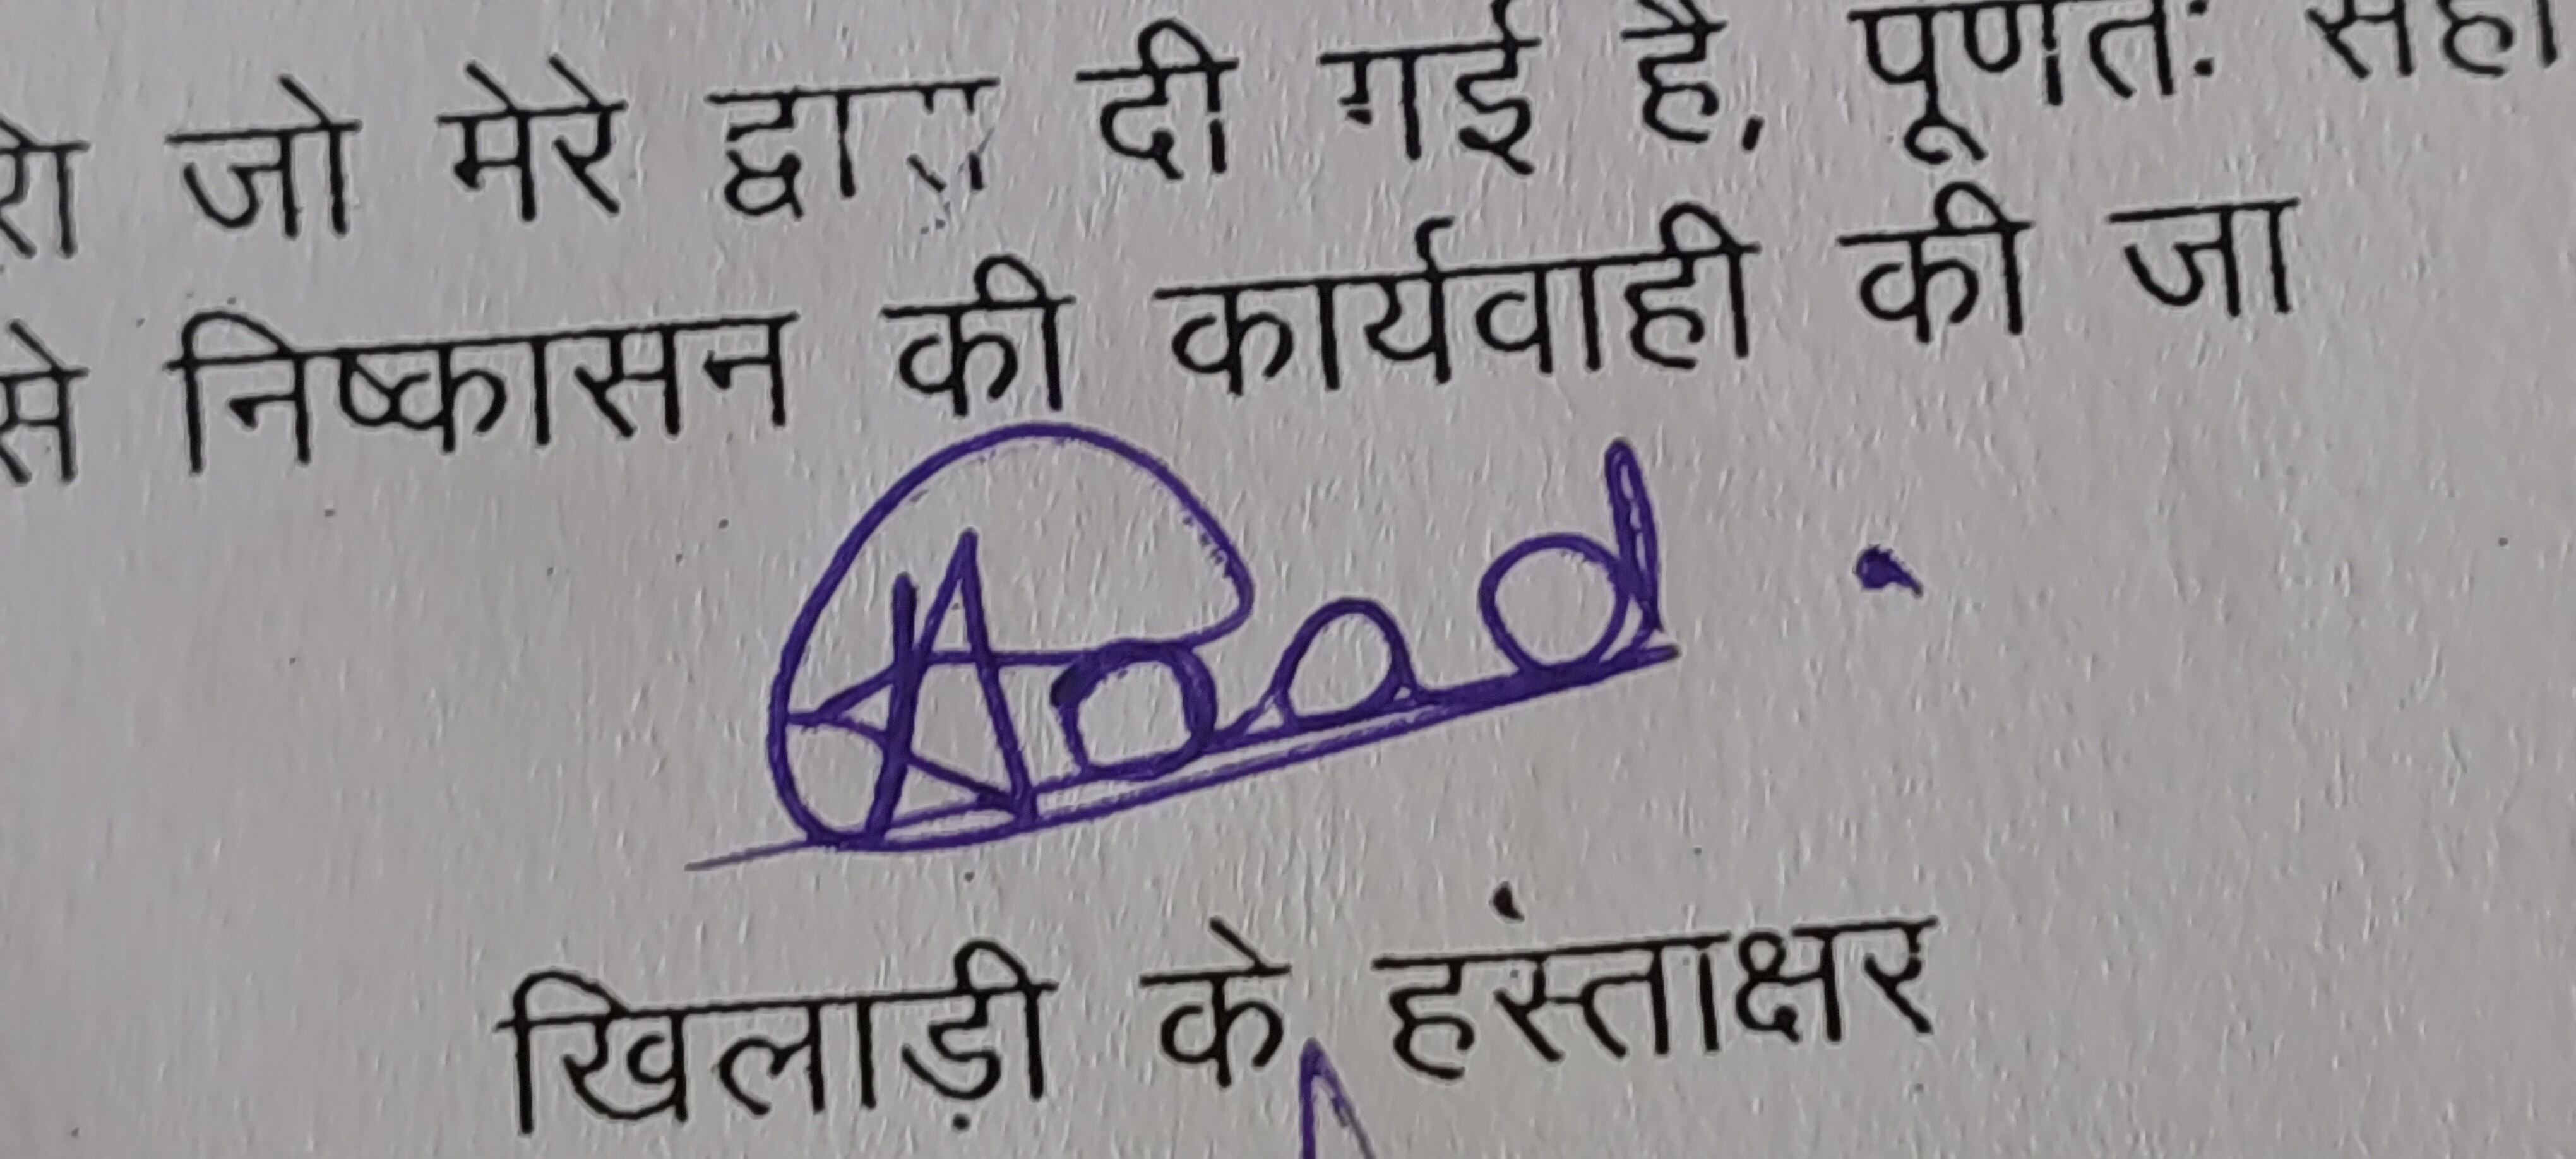 जो मेरे द्वारा दी गई है, पूर्णतः सही
से निष्कासन की कार्यवाही की जा
खिलाड़ी के हंस्ताक्षर